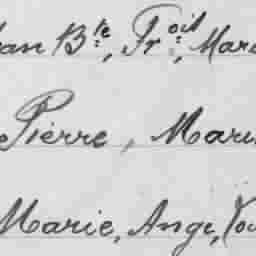 ean Bte, Froit, Mari
Pierre, Mari
Marie, Ange, Vo